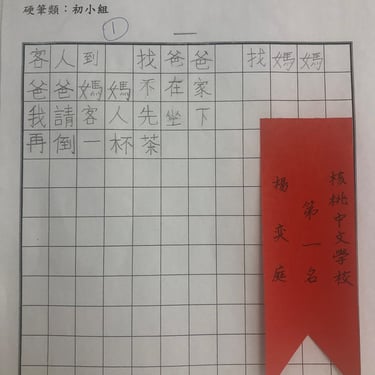 硬筆類：初小組
1
客人到 找爸爸 找媽媽
爸爸媽媽不在家
我請客人先坐下
再倒一杯茶
核桃中文學校
第一名
楊奕庭